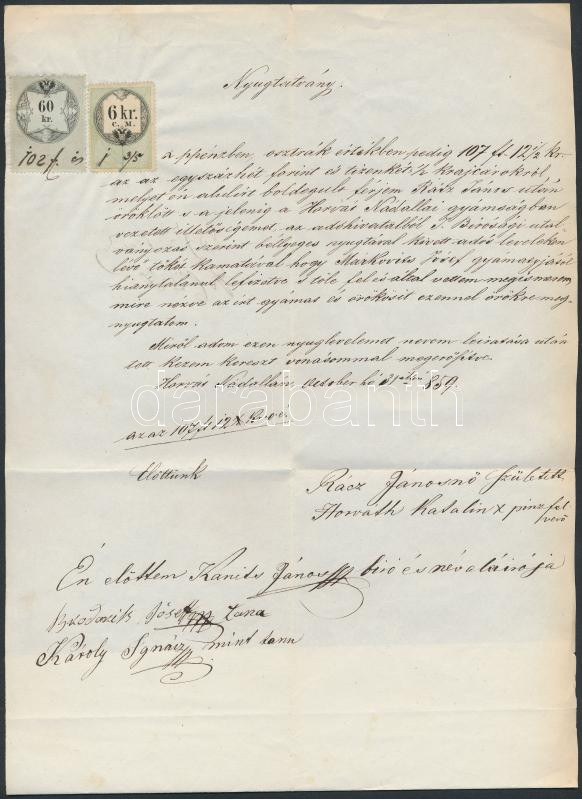 Nyugtatvány.
60
kr.
6 kr.
C. M.
102 f. és
a ppénzben, osztrák értékben pedig 107 ft. 12½ kr.
az az egyszázhét forint és tizenkét ½ krajczárokról,
melyet én alulírt boldogult férjem Rácz János után
öröklött s a jelenig a Horvát Nádallai gyámságban
vezetett illetőségemet, az adóhivatalból T. Birósági utal-
ványozás szerint bélyeges nyugtával kivett adós leveleken
lévő tőkés kamataival hogy Markovits Josef gyámatyjától
hiánytalanul lefizetve s tőle fel es által vettem megismerem
mire nézve az ist gyámas és örökösit ezennel örökre meg-
nyugtatom.
Miről adom ezen nyuglevelemet nevem leíratása után
tett kezem kereszt vonásommal megerősítve.
Horvát Nádallán, October hó 31 én 859.
az az 107 ft 12½ kr
Előttünk
Rácz Jánosnő Született
Horváth Katalin x pénz fel
vevő
Én előttem Kanits János biró és név aláirója
József Tanu
Károly Ignácz mint tanu
darabanth